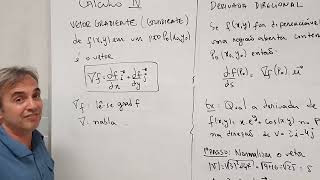 Cálculo IV
VETOR GRADIENTE (GRADIENTE)
de f(x,y) em um Pto P₀(x₀,y₀)
é o vetor
∇f = ∂f/∂x i + ∂f/∂y j
∇f: lê-se grad f
∇: nabla
DERIVADA DIRECIONAL
Se f(x,y) for diferenciável
uma região aberta
P₀(x₀,y₀) então:
∂f(P₀) ∇f(P₀) u
∂s
Ex: Qual a derivada de
f(x,y)= x e^y + cos(xy) no P
na direção de v = 3i-4j
1º PASSO: Normaliza o veto